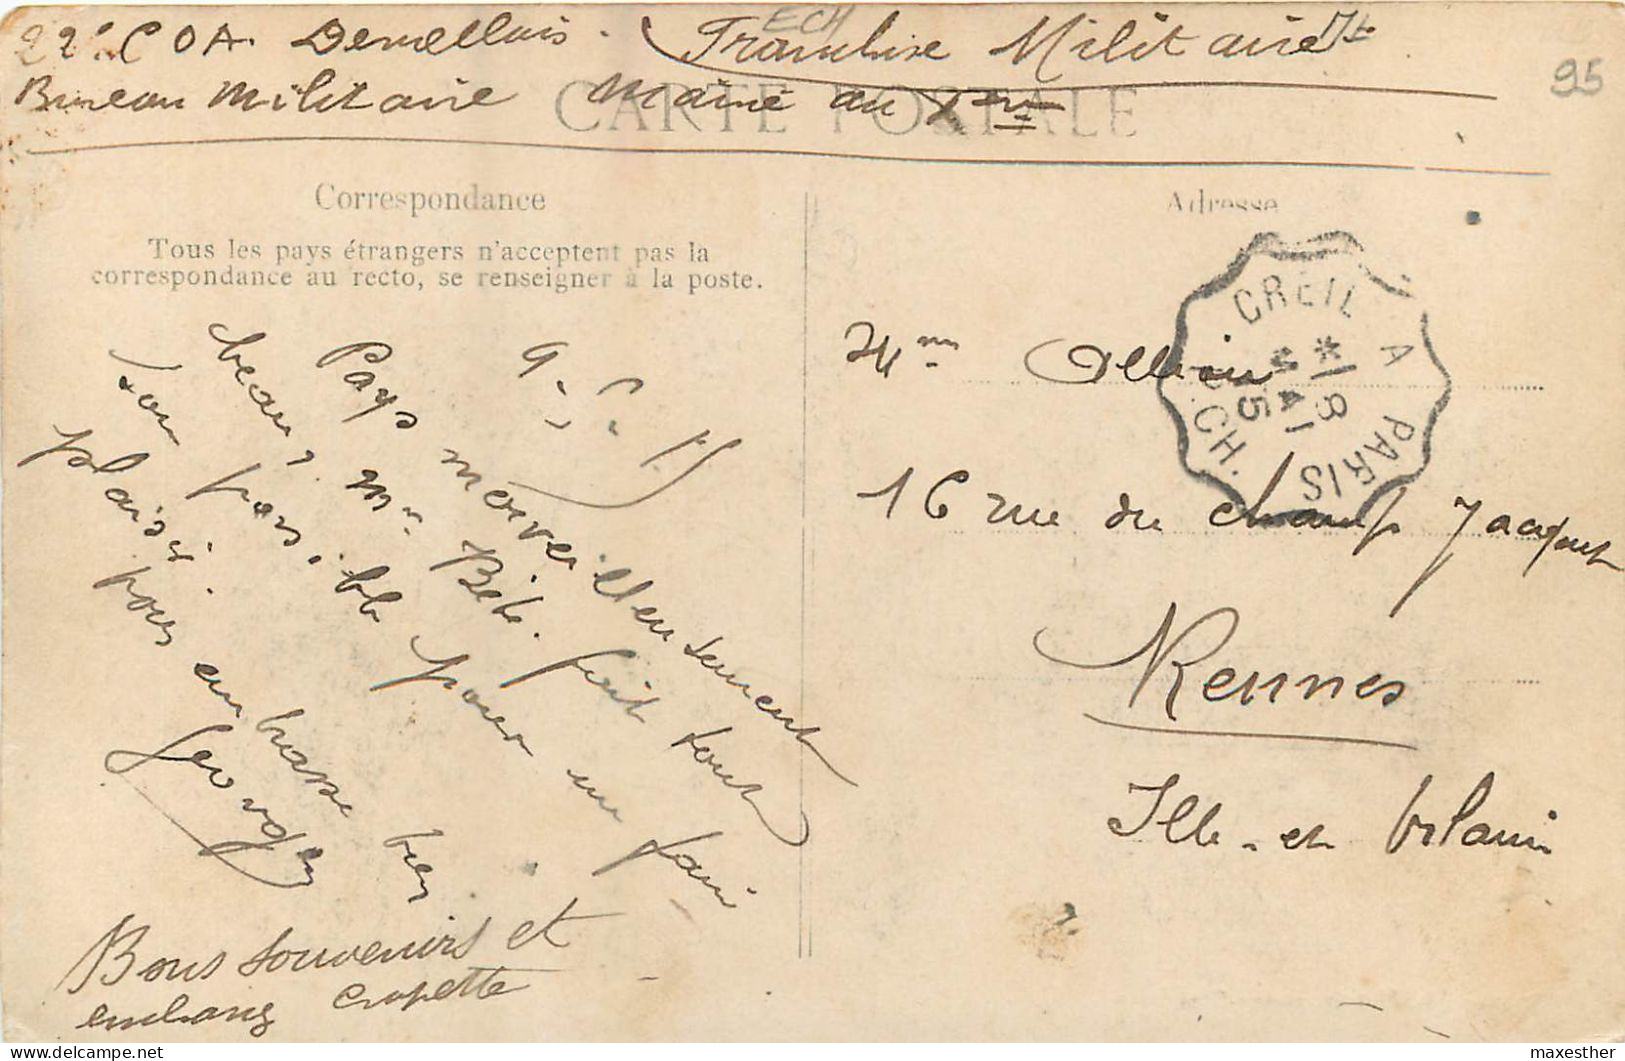 22e C O A. Franchise Militaire
Bureau militaire Mairie au
CARTE POSTALE
95
ECH
Correspondance
Tous les pays étrangers n'acceptent pas la
correspondance au recto, se renseigner à la poste.
Adresse
CREIL A PARIS
ECH.
*18
MAI
15
Pays merveilleusement
beau, Mr Bébé fait tout
son possible pour me fair
plaisir.
vous embrasse bien
Georges
Bons souvenirs et
Mme
16 rue du champ Jacquet
Rennes
Ille-et Vilaine
maxesther